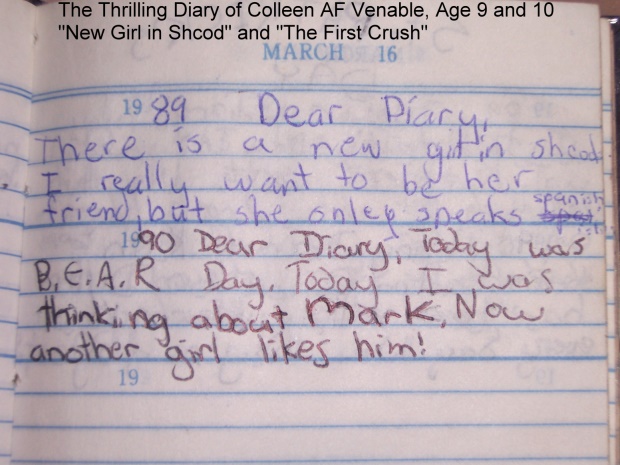 The Thrilling Diary of Colleen AF Venable, Age 9 and 10
"New Girl in Shcod" and "The First Crush"
MARCH 16
1989 Dear Diary,
There is a new girl in shcod
I really want to be her
friend, but she onley speaks spanish
1990 Dear Diary, Today was
B.E.A.R Day. Today I was
thinking about Mark. Now
another girl likes him!
19